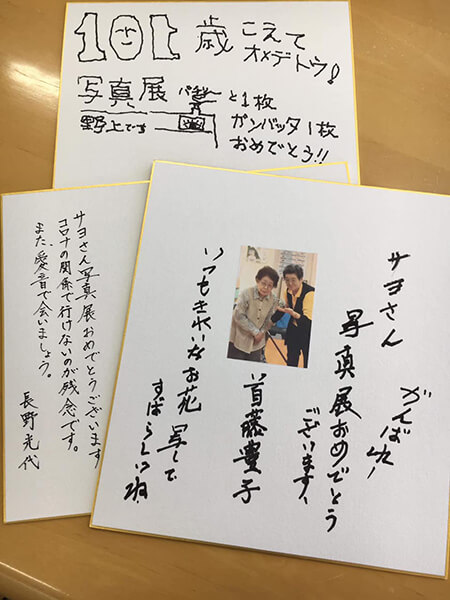 101歳 こえて
オメデトウ!
写真展 パチリー と1枚
野上です ガンバッタ1枚
おめでとう!!
サヨさん写真展おめでとうございます
コロナの関係で行けないのが残念です。
また、愛音で会いましょう。
長野光代
サヨさん がんばれー
写真展おめでとう
ございます、
首藤豊子
いつもきれいなお花写して
すばらしいね